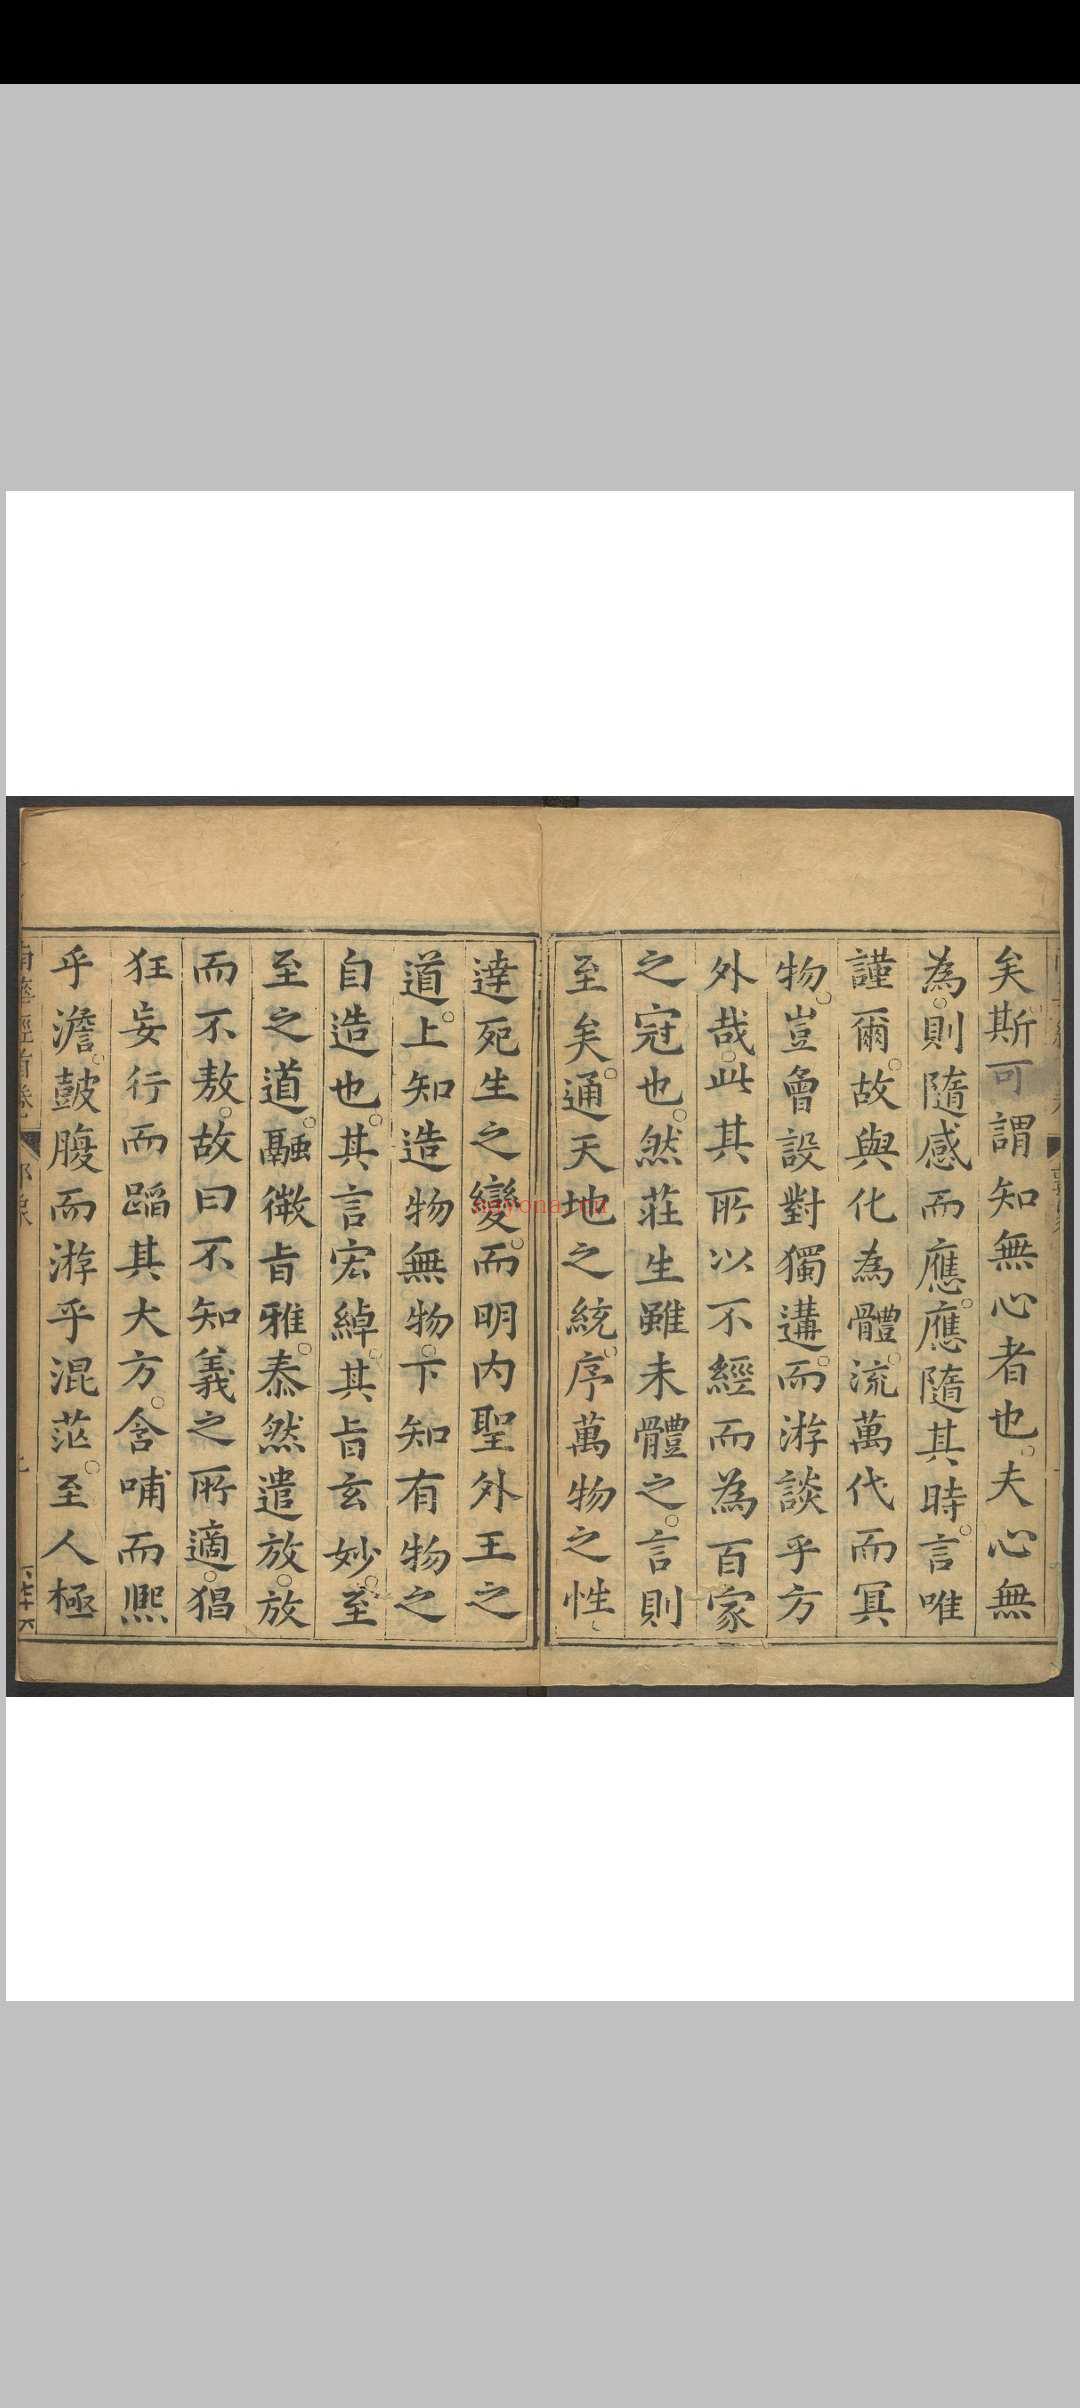 矣斯可謂知無心者也夫心無
為則隨感而應應隨其時言唯
謹爾故與化為體流萬代而冥
物豈曾設對獨遘而游談乎方
外哉此其所以不經而為百家
之冠也然莊生雖未體之言則
至矣通天地之統序萬物之性
達死生之變而明内聖外王之
道上知造物無物下知有物之
自造也其言宏綽其旨玄妙至
至之道融微旨雅泰然遣放放
而不敖故曰不知義之所適猖
狂妄行而蹈其大方含哺而熈
乎澹鼓腹而游乎混茫至人極
nayona.cn